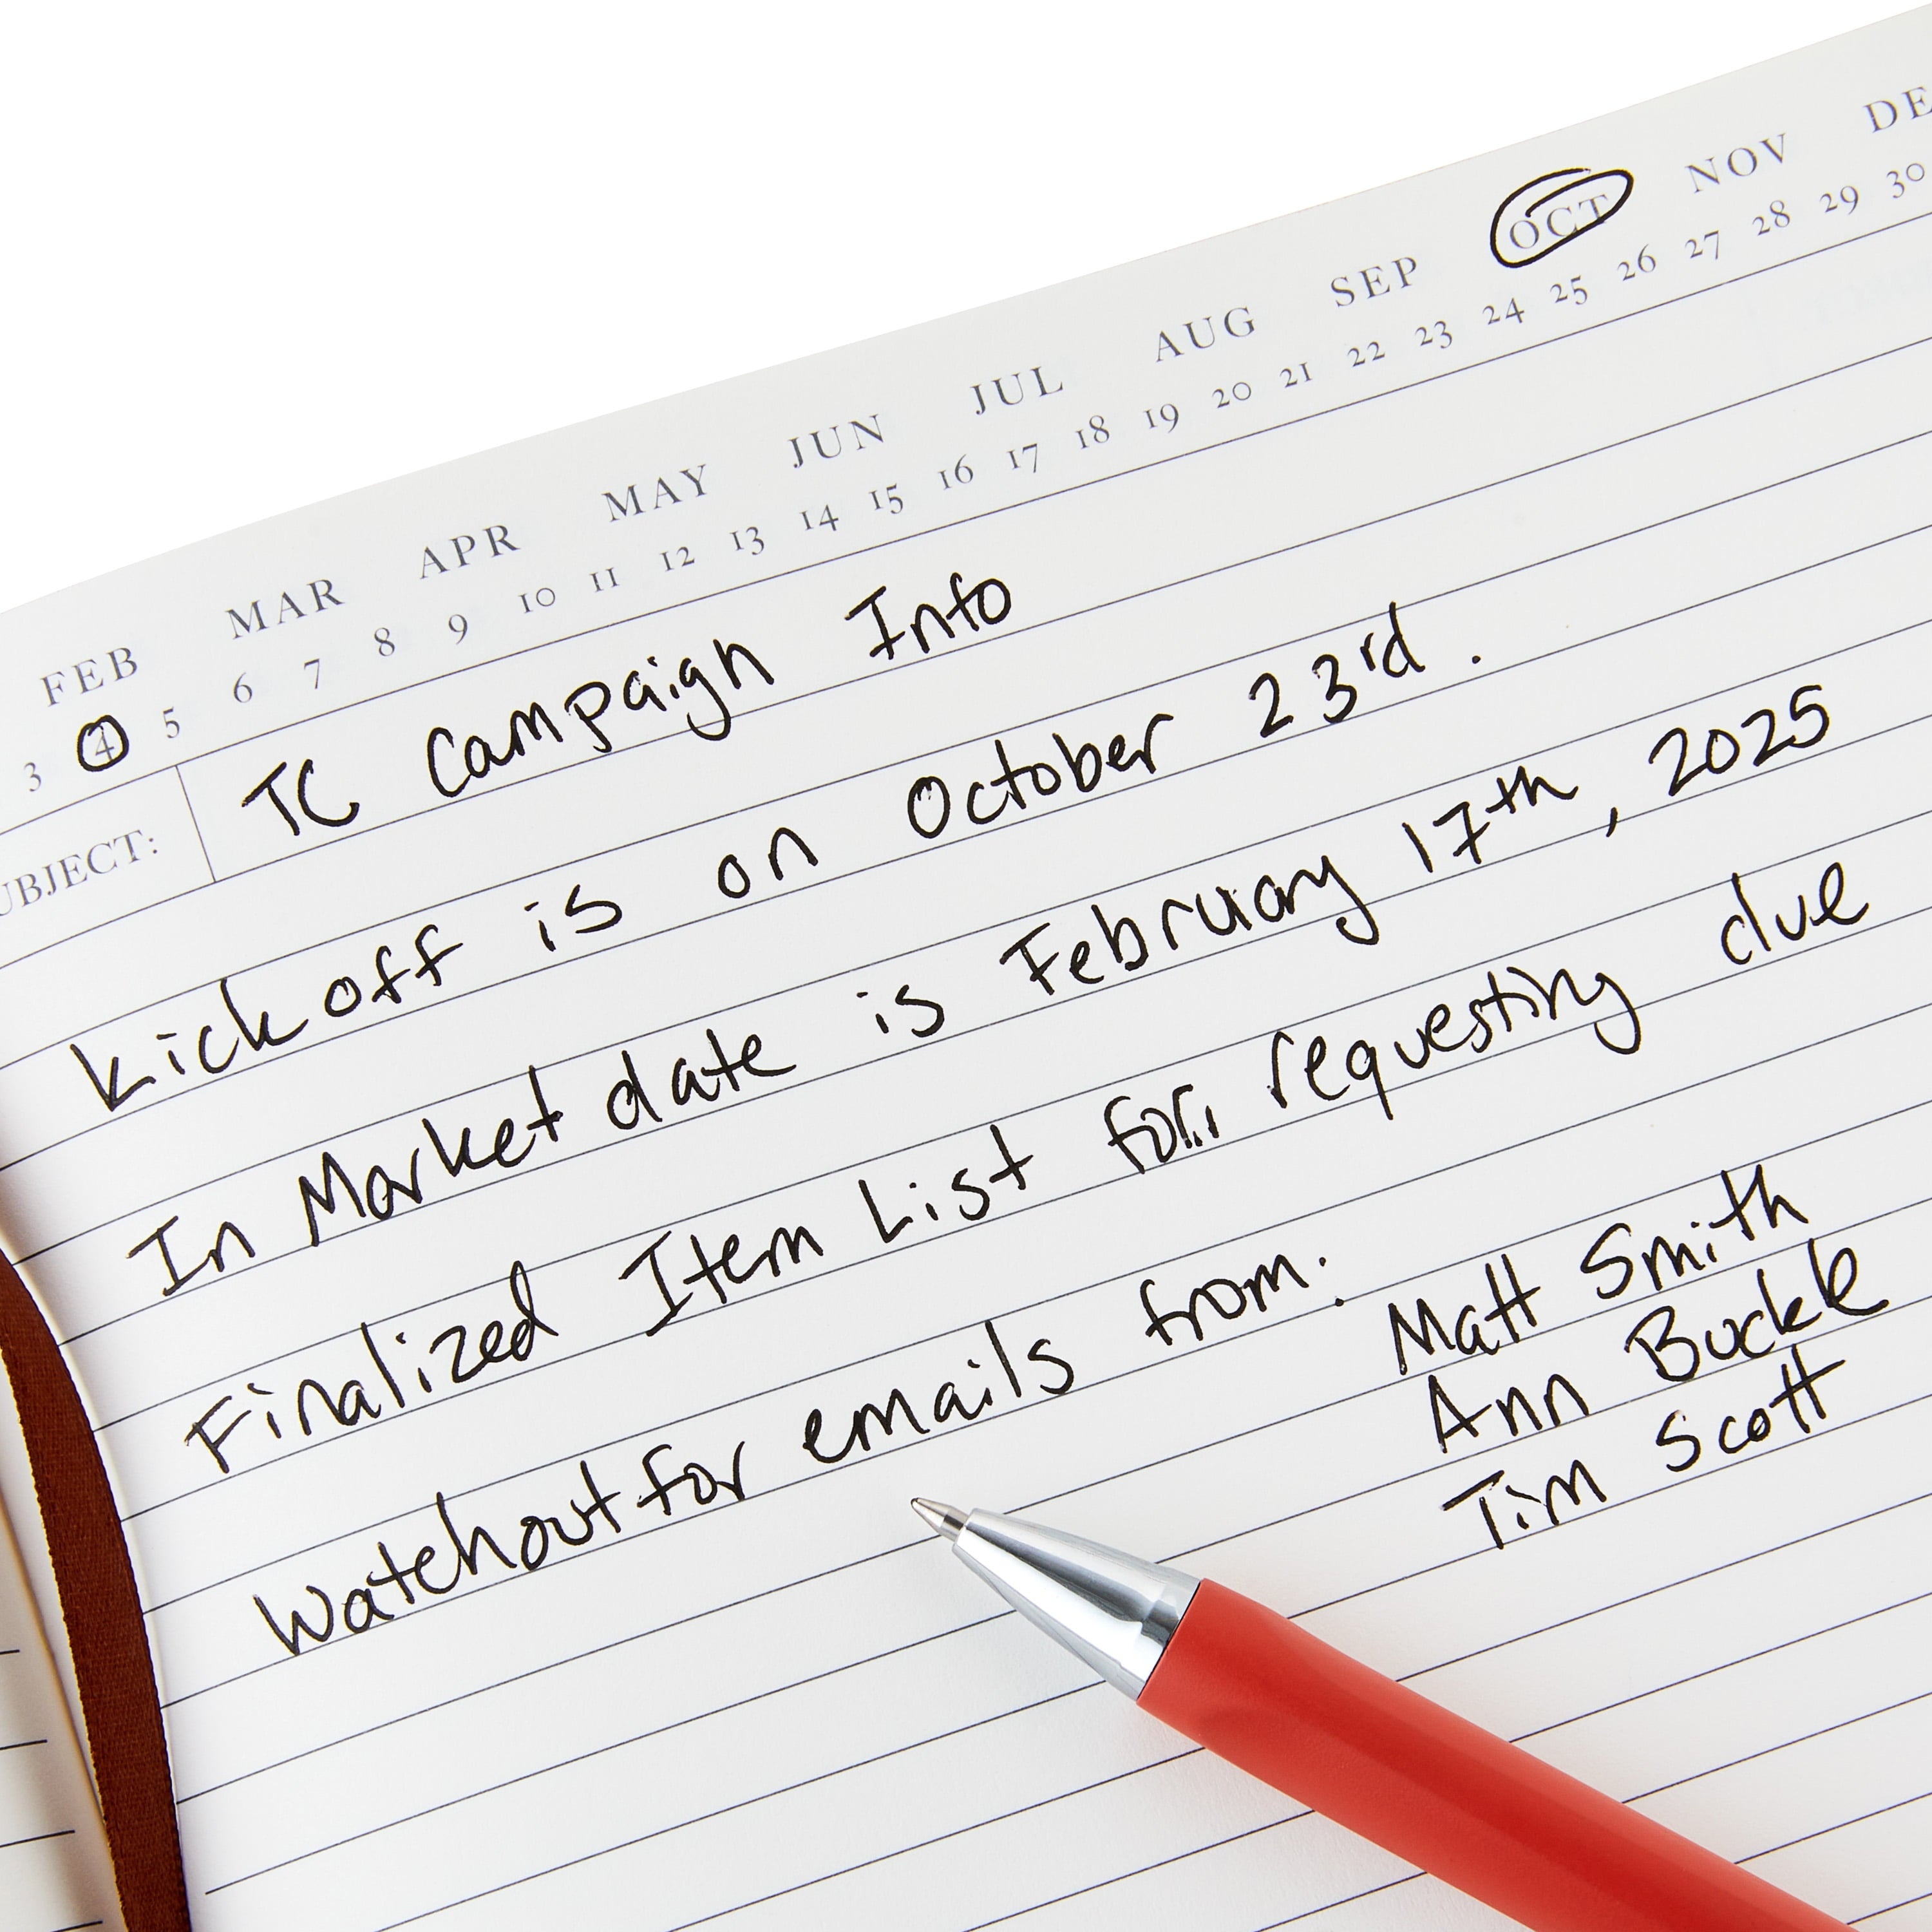 FEB MAR APR MAY JUN JUL AUG SEP OCT NOV DE
3 4 5 6 7 8 9 10 11 12 13 14 15 16 17 18 19 20 21 22 23 24 25 26 27 28 29 30
UBJECT: TC Campaign Info
Kickoff is on October 23rd.
In Market date is February 17th, 2025
Finalized Item List for requesting due
Watchout for emails from: Matt Smith
Ann Buckle
Tim Scott